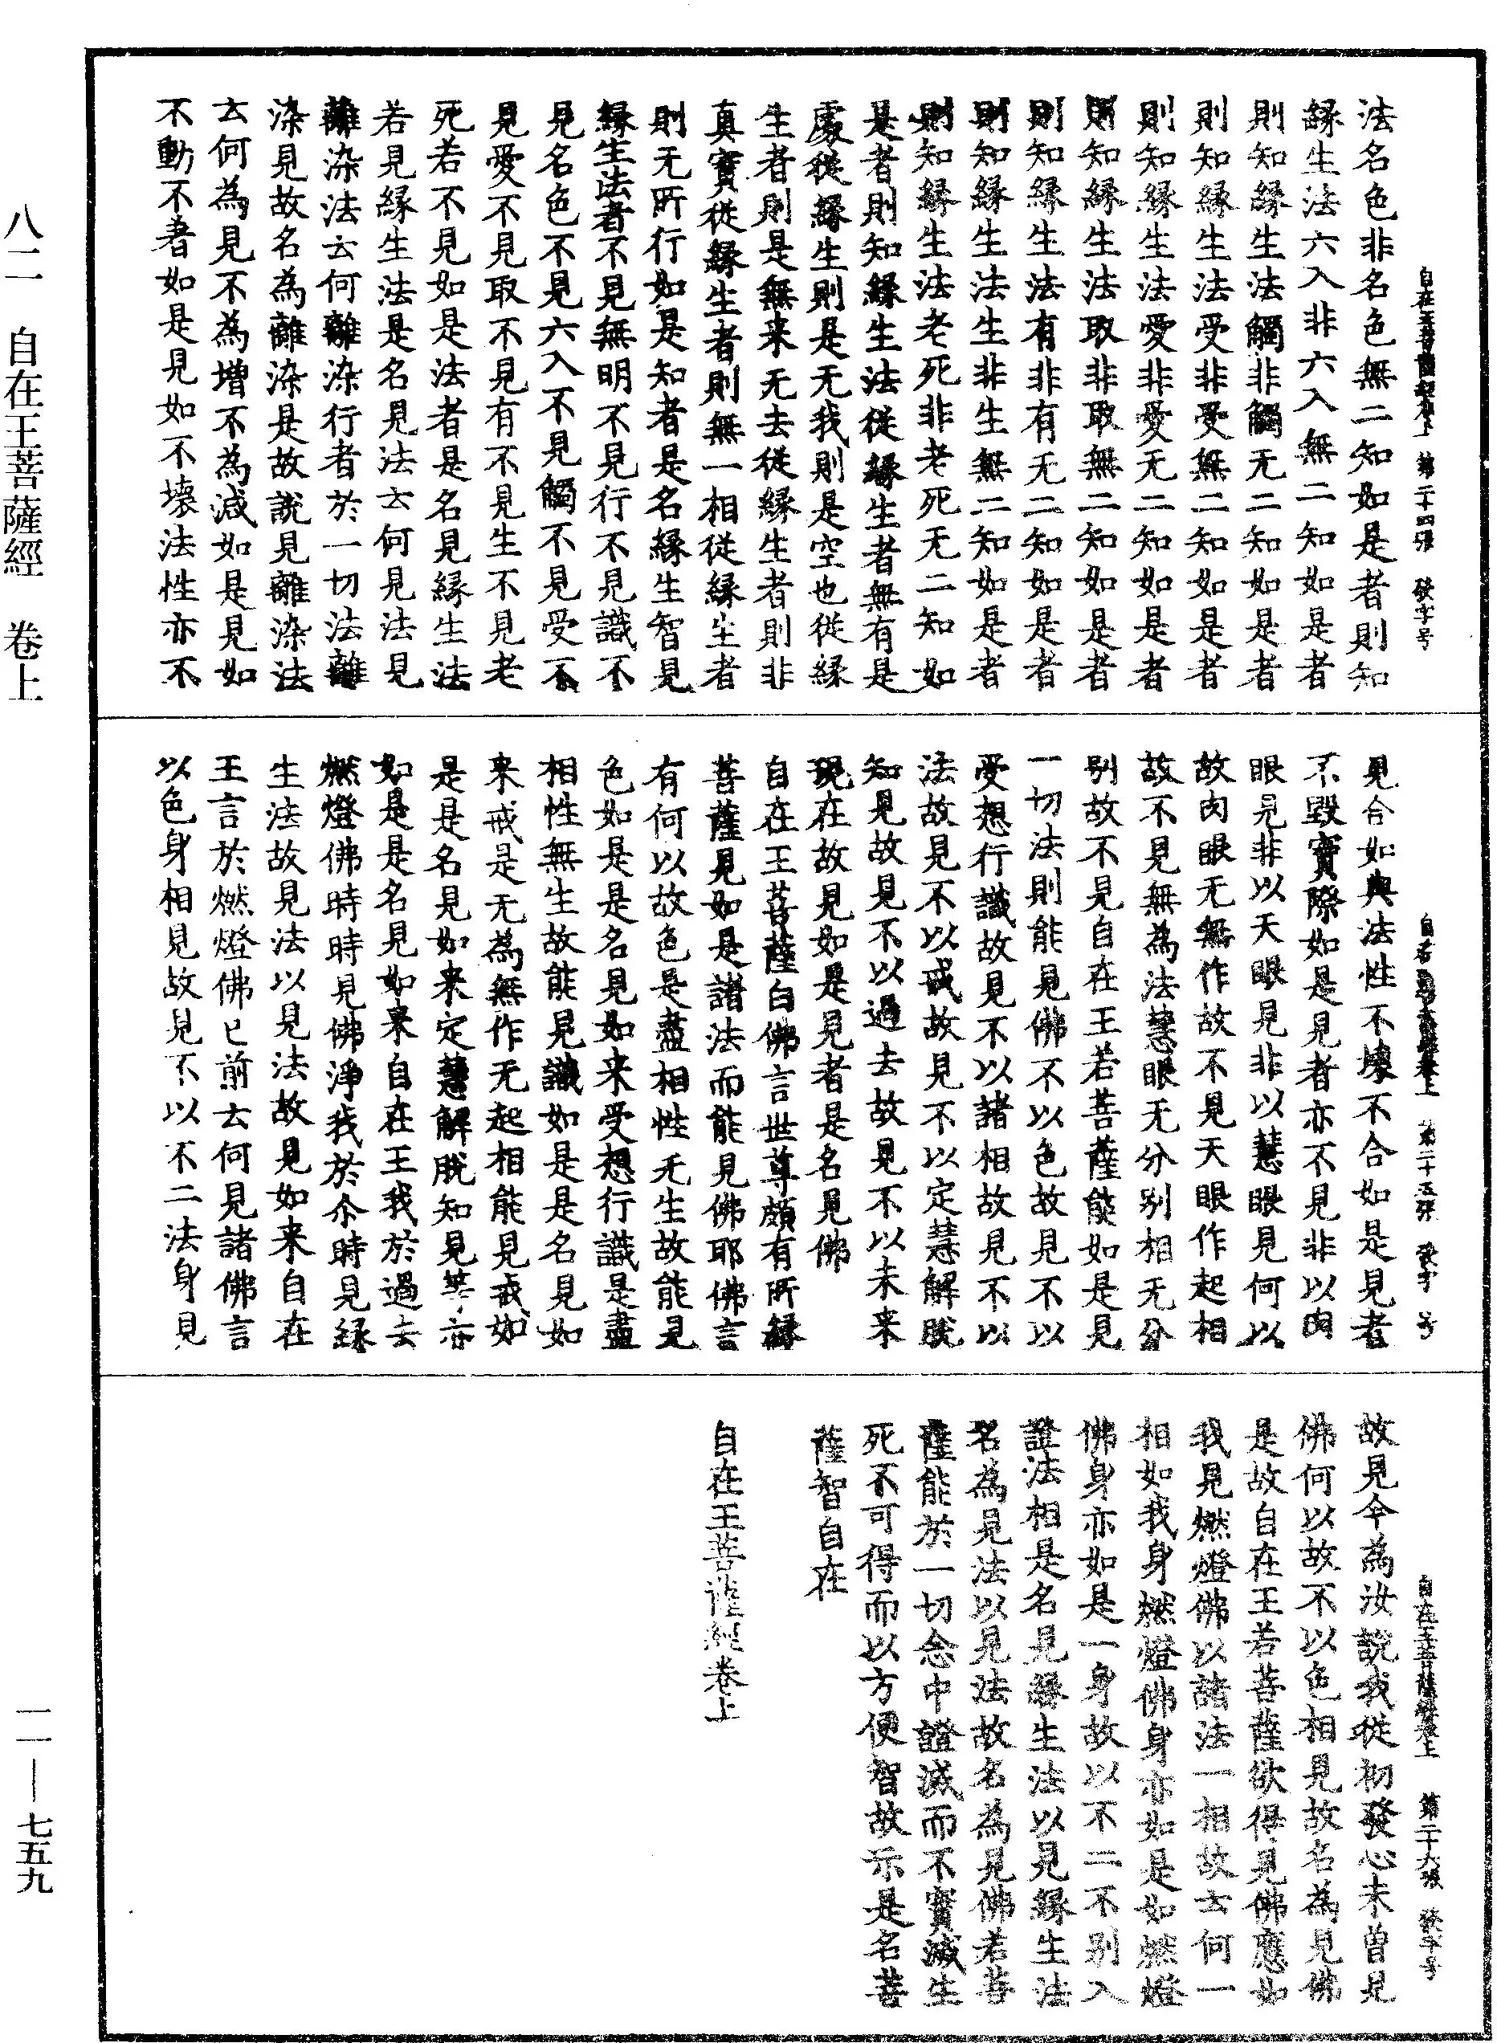 自在王菩薩經卷上 第二十四張 發字号
法名色非名色無二知如是者則知
緣生法六入非六入無二知如是者
則知緣生法觸非觸无二知如是者
則知緣生法受非受無二知如是者
則知緣生法愛非愛无二知如是者
則知緣生法取非取無二知如是者
則知緣生法有非有无二知如是者
則知緣生法生非生無二知如是者
則知緣生法老死非老死无二知如
是者則知緣生法從緣生者無有是
處從緣生則是无我則是空也從緣
生者則是無来无去從緣生者則非
真實從緣生者則無一相從緣生者
則无所行如是知者是名緣生智見
緣生法者不見無明不見行不見識不
見名色不見六入不見觸不見受不
見愛不見取不見有不見生不見老
死若不見如是法者是名見緣生法
若見緣生法是名見法云何見法見
離染法云何離染行者於一切法離
染見故名為離染是故說見離染法
云何為見不為增不為減如是見如
不動不著如是見如不壞法性亦不
自在王菩薩經卷上 第二十五張 發字号
見合如與法性不壞不合如是見者
不毀實際如是見者亦不見非以肉
眼見非以天眼見非以慧眼見何以
故肉眼无無作故不見天眼作起相
故不見無為法慧眼无分别相无分
别故不見自在王若菩薩能如是見
一切法則能見佛不以色故見不以
受想行識故見不以諸相故見不以
法故見不以戒故見不以定慧解脫
知見故見不以過去故見不以未来
現在故見如是見者是名見佛
自在王菩薩白佛言世尊頗有所緣
菩薩見如是諸法而能見佛耶佛言
有何以故色是盡相性无生故能見
色如是是名見如来受想行識是盡
相性無生故能見識如是是名見如
来戒是无為無作无起相能見戒如
是是名見如来定慧解脫知見等亦
如是是名見如来自在王我於過去
燃燈佛時時見佛淨我於尒時見緣
生法故見法以見法故見如来自在
王言於燃燈佛已前云何見諸佛言
以色身相見故見不以不二法身見
自在王菩薩經卷上 第二十六張 發字号
故見今為汝說我從初發心未曾見
佛何以故不以色相見故名為見佛
是故自在王若菩薩欲得見佛應如
我見燃燈佛以諸法一相故云何一
相如我身燃燈佛身亦如是如燃燈
佛身亦如是一身故以不二不别入
證法相是名見緣生法以見緣生法
名為見法以見法故名為見佛若菩
薩能於一切念中證滅而不實滅生
死不可得而以方便智故示是名菩
薩智自在
自在王菩薩經卷上
八二 自在王菩薩經 卷上
一一—七五九